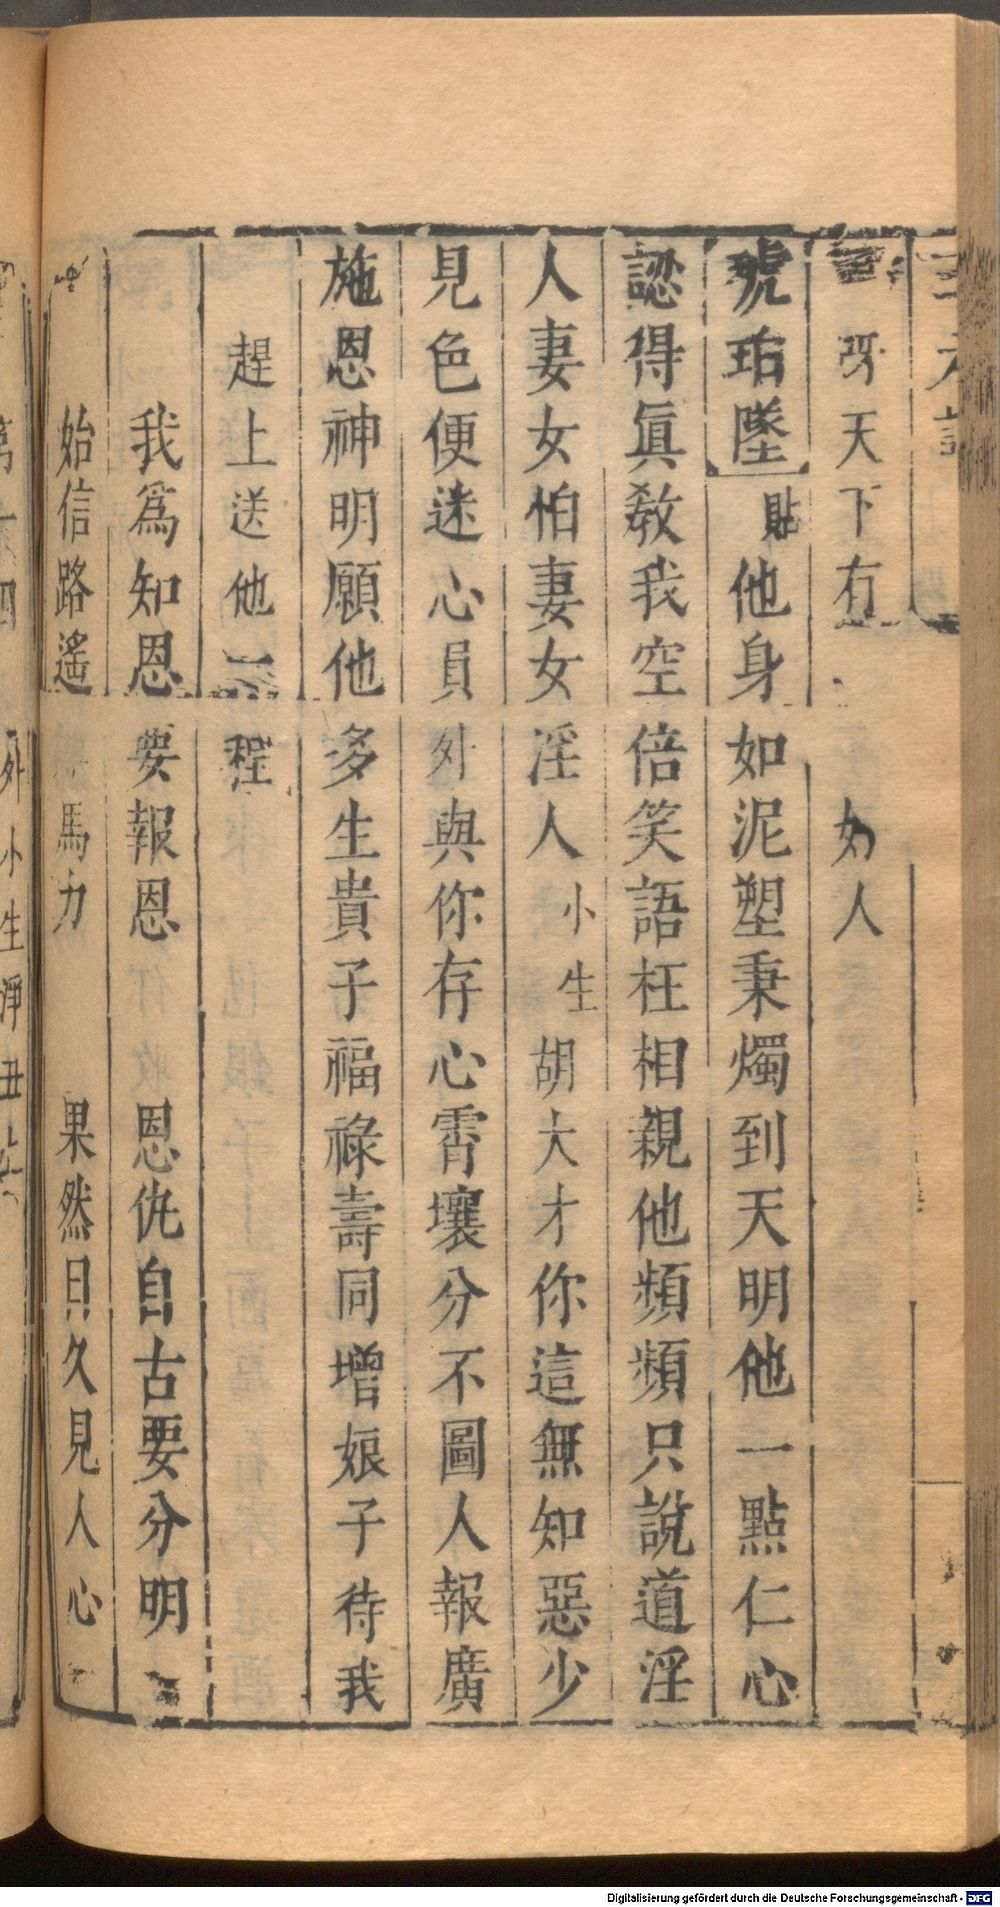 三元記
呀天下有 好人
琥珀墜 貼 他身如泥塑秉燭到天明他一點仁心
認得眞教我空倍笑語枉相親他頻頻只說道淫
人妻女怕妻女淫人 小生 胡大才你這無知惡少
見色便迷心員外與你存心霄壤分不圖人報廣
施恩神明願他多生貴子福祿壽同增娘子待我
趕上送他一程
我爲知恩要報恩 恩仇自古要分明
始信路遙 馬力 果然日久見人心
外 小生淨丑
Digitalisierung gefördert durch die Deutsche Forschungsgemeinschaft - DFG